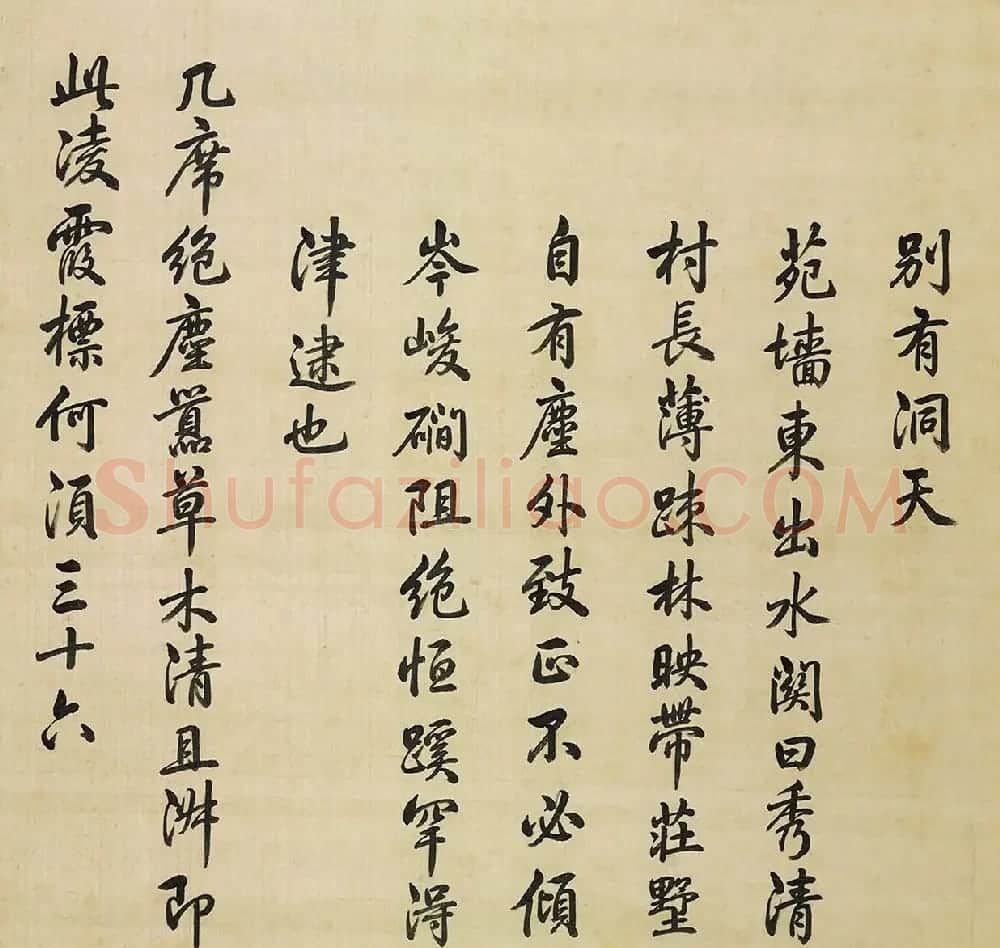 別有洞天
苑墻東出水關曰秀清
村長薄疎林映帶莊墅
自有塵外致正不必傾
岑峻磵阻絕恒蹊罕得
津逮也
几席絕塵囂草木清且淑即
此凌霞標何須三十六
shufaziliao.COM